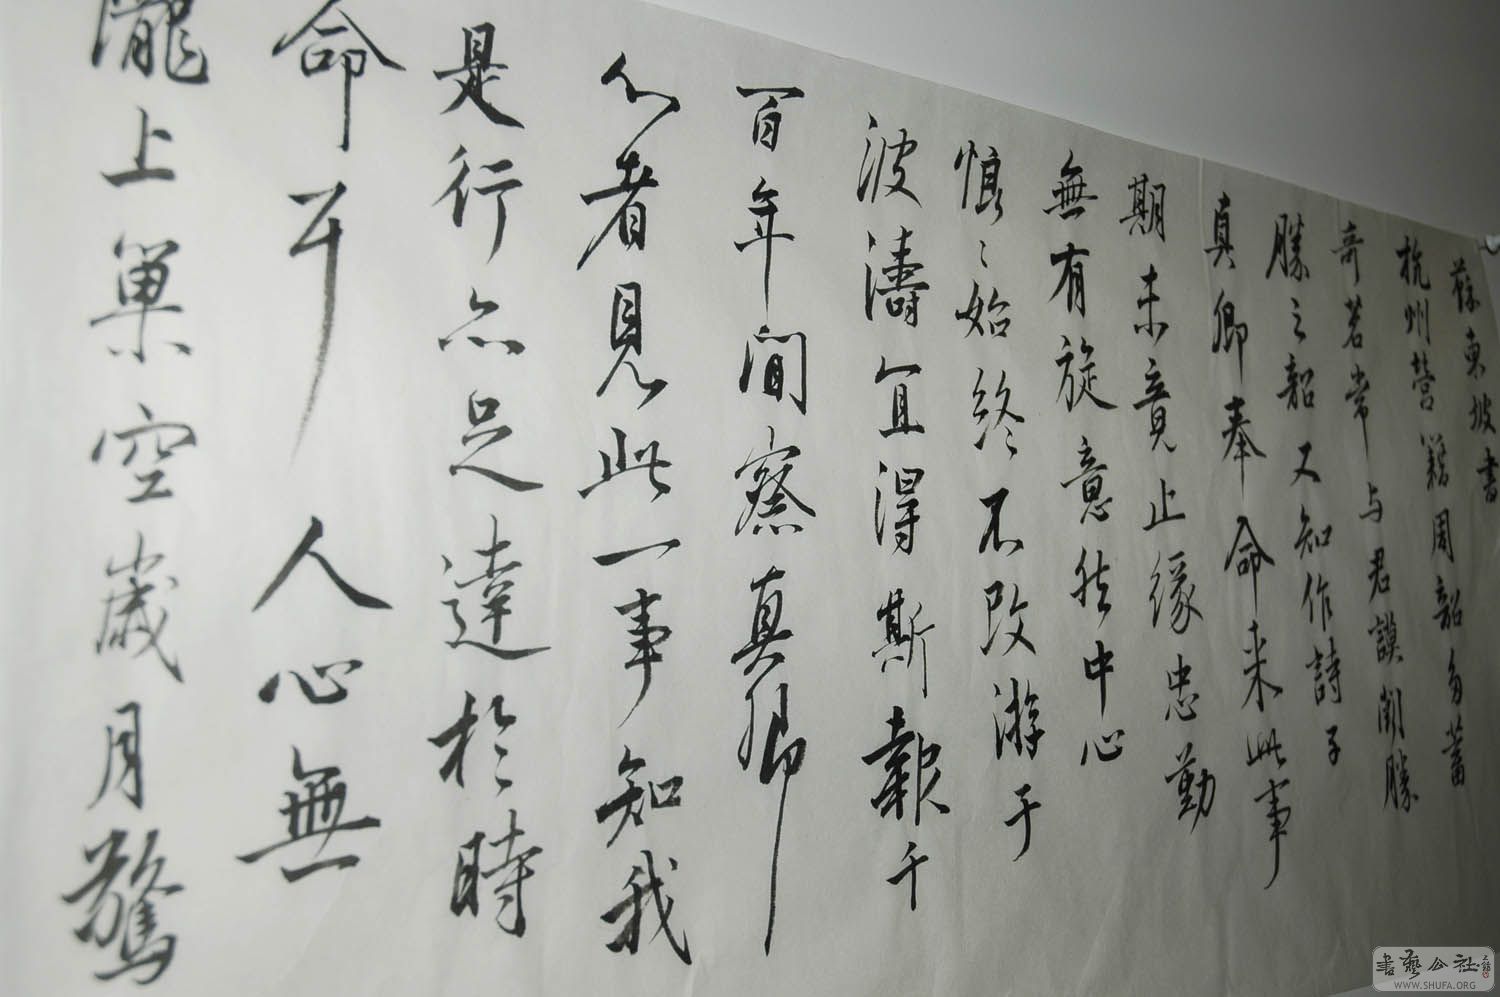 蘇東坡書
杭州營籍周韶多蓄
奇茗常与君謨鬪勝
勝之韶又知作詩子
真卿奉命来此事
期未竟止緣忠勤
無有旋意然中心
悢〻始終不改游于
波濤宜得斯報千
百年間察真卿
心者見此一事知我
是行亦足達於時
命耳人心無
瀧上巢空歳月驚
書藝公社
WWW.SHUFA.ORG